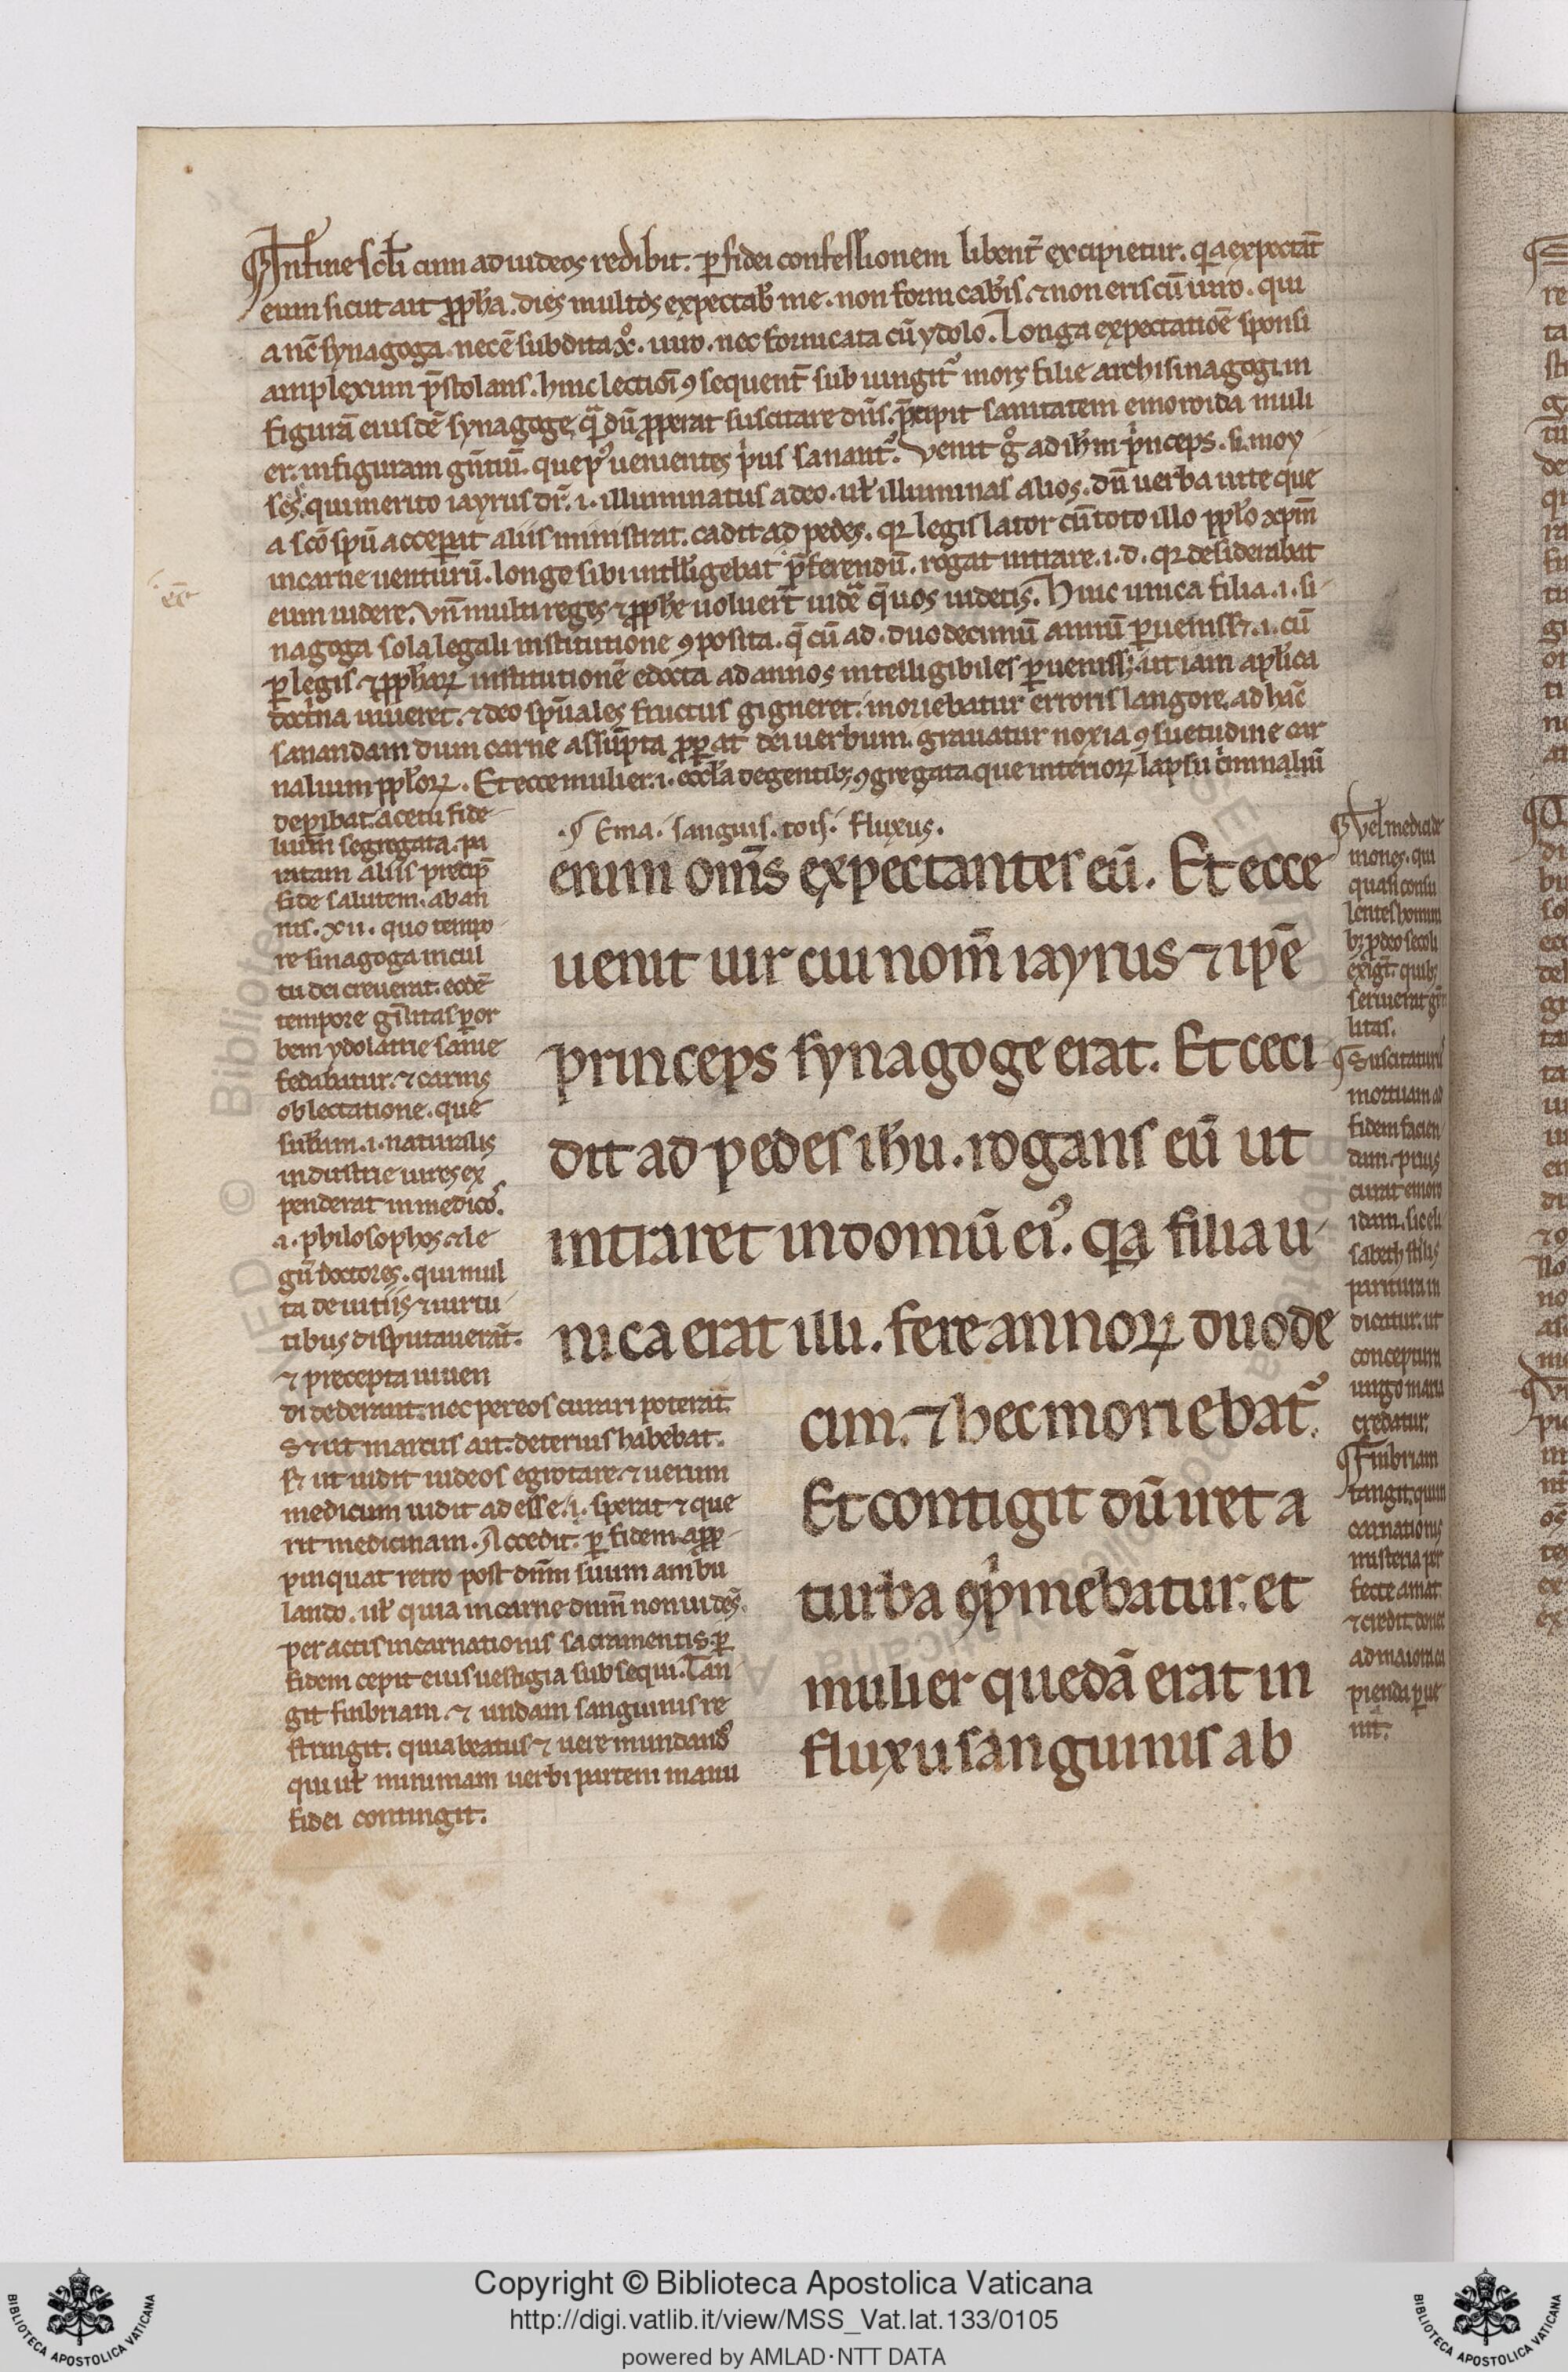 Infine scłi cum ad iudeos redibit. ꝑ fidei confessionem libent̃ excipietur. qͥa expectãt
eum sicut ait ꝓpħa. dies multos expectab̃ me. non fornicab̃is. ⁊ non eris cũ uiro. qui
a nc̃ synagoga. nec ẽ subdita xͦ. uiro. nec fornicata cũ ydolo. Longa expectatioẽ sponsi
amplexum p̃stolans. hinc lectioĩ ꝯsequent̃ sub iungit᷑ mors filie archisinagogi in
figurã eiusdẽ synagoge, q̃ dũ ꝓperat suscitare dñs. p̃cipit sanitatem emoroida muli
er. in figuram gñtiũ. que p᷒ uenientes pͥus sanant᷑. Venit gͦ ad ihm̃ pͥnceps .s. moy
ses. qui merito iayrus dr̃ .i. illuminatus a deo. uł illuminãs alios. dũ uerba uite que
a sc̃o spũ acceperat aliis ministrat. cadit ad pedes. qꝛ legis lator cũ toto illo ppło xp̃m
in carne uenturũ. longe sibi intełłigebat p̃ferendũ. rogat intrare .i. d. qꝛ desiderabat
eum uidere. Vñ multi reges ⁊ ꝓphe uoluer̃t uidẽ q̃ uos uidetis. Huic unica filia .i. si
nagoga sola legali institutione ꝯposita. q̃ cũ ad. duodecimũ annũ ꝑuenisset .i. cũ
ꝑ legis ⁊ ꝓphaꝝ institutionẽ edocta ad annos intelligibiles ꝑueniss;. ut iam apłica
doctͥna uiueret. ⁊ deo spũales fructus gigneret. moriebatur erroris langore. ad hãc
sanandam dum carne assũpta ꝓꝑat dei uerbum. grauatur noxia ꝯsuetudine car
nalium ppłoꝝ. Et ecce mulier .i. ecc̃ła de gentibꝫ ꝯgregata que interioꝝ lapsu cͥminaliũ
depibat. a cetu fide
lium segregata. pa
ratam aliis precip̃
fide salutem. ab an
nis. xii. quo tempo
re sinagoga in cul
tu dei creuerat. eodẽ
tempore gñlitas ꝑ or
bem ydolatrie sanie
fedabatur. ⁊ carnis
oblectatione. que
sub̃am .i. naturalis
industrie uires ex
penderat in medicos᷒.
.i. philosophos. ⁊ le
gũ doctores. qui mul
ta de uitiis ⁊ uirtu
tibus disputauerãt.
⁊ precepta uiuen
di dederant. nec per eos curari poterat.
s; ut marcus ait. deterius habebat.
S; ut uidit iudeos egrotare. ⁊ uerum
medicum uidit adesse .i. sperat ⁊ que
rit medicinam. Accedit. ꝑ fidem apꝓ
pinquat retro post dñm suum ambu
lando. uł quia in carne dñm non uidẽs.
peractis incarnationis sacramentis. ꝑ
fidem cepit eius uestigia subsequi. Tan
git fimbriam. ⁊ undam sanguinis re
stringit. quia beatus ⁊ uere mundand᷒
qui uł minimam uerbi partem manu
fidei contingit.
Ema. sanguis. rois. fluxus.
enim om̃s expectantes eũ. Et ecce
uenit uir cui nom̃ iayrus ⁊ ip̃e
princeps synagoge erat. Et ceci
dit ad pedes ihu. rogans eũ ut
intraret in domũ ei᷒. qͥa filia u
nica erat illi. fere annoꝝ duode
cim. ⁊ hec moriebat᷑.
Et contigit dũ iret a
turba ꝯpͥmebatur. et
mulier quedã erat in
fluxu sanguinis ab
Vel medici de
mones. qui
quasi consu
lentes homini
bꝫ ꝑ deo se coli
exigt̃. quibꝫ
seruierat gñ
litas.
Suscitaturus
mortuam ad
fidem facien
dum. prius
curat emoro
idam. sic eli
sabeth st̃ilis
paritura in
dicatur. ut
conceptura
uirgo maria
credatur.
Fimbriam
tangit. qui in
carnationis
misteria per
fecte amat.
⁊ credit. donec
ad maiora ca
pienda ꝑue
nit.
© Biblioteca Apostolica Vaticana
Copyright © Biblioteca Apostolica Vaticana
http://digi.vatlib.it/view/MSS_Vat.lat.133/0105
powered by AMLAD·NTT DATA
BIBLIOTECA APOSTOLICA VATICANA
BIBLIOTECA APOSTOLICA VATICANA